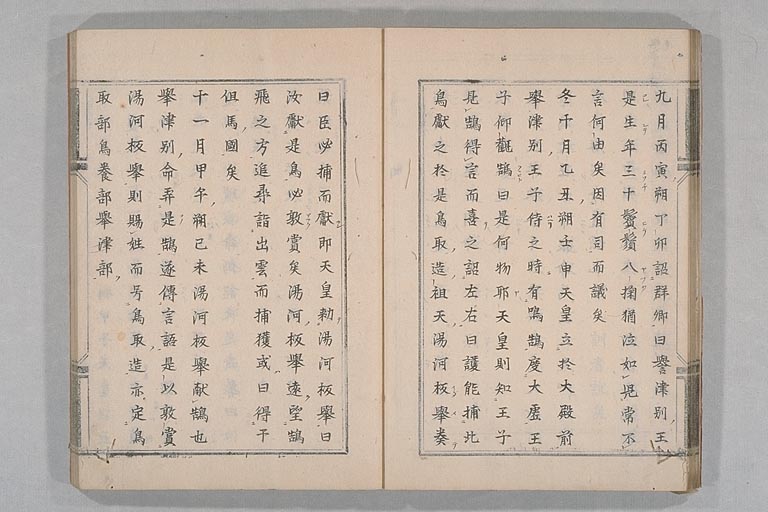 九月丙寅朔丁卯詔群卿曰譽津別王
是生年三十鬢鬚八掬猶泣如兒常不
言何由矣因有司而議矣
冬十月乙丑朔壬申天皇立於大殿前
譽津別王子侍之時有鳴鵠度大虛王
子仰觀鵠曰是何物耶天皇則知王子
見鵠得言而喜之詔左右曰誰能捕此
鳥獻之於是鳥取造祖天湯河板舉奏
曰臣必捕而獻即天皇勅湯河板舉曰
汝獻是鳥必敦賞矣湯河板舉遠望鵠
飛之方追尋詣出雲而捕獲或曰得于
但馬國矣
十一月甲午朔己未湯河板舉献鵠也
譽津別命弄是鵠遂傳言語是以敦賞
湯河板舉則賜姓而号鳥取造亦定鳥
取部鳥養部譽津部